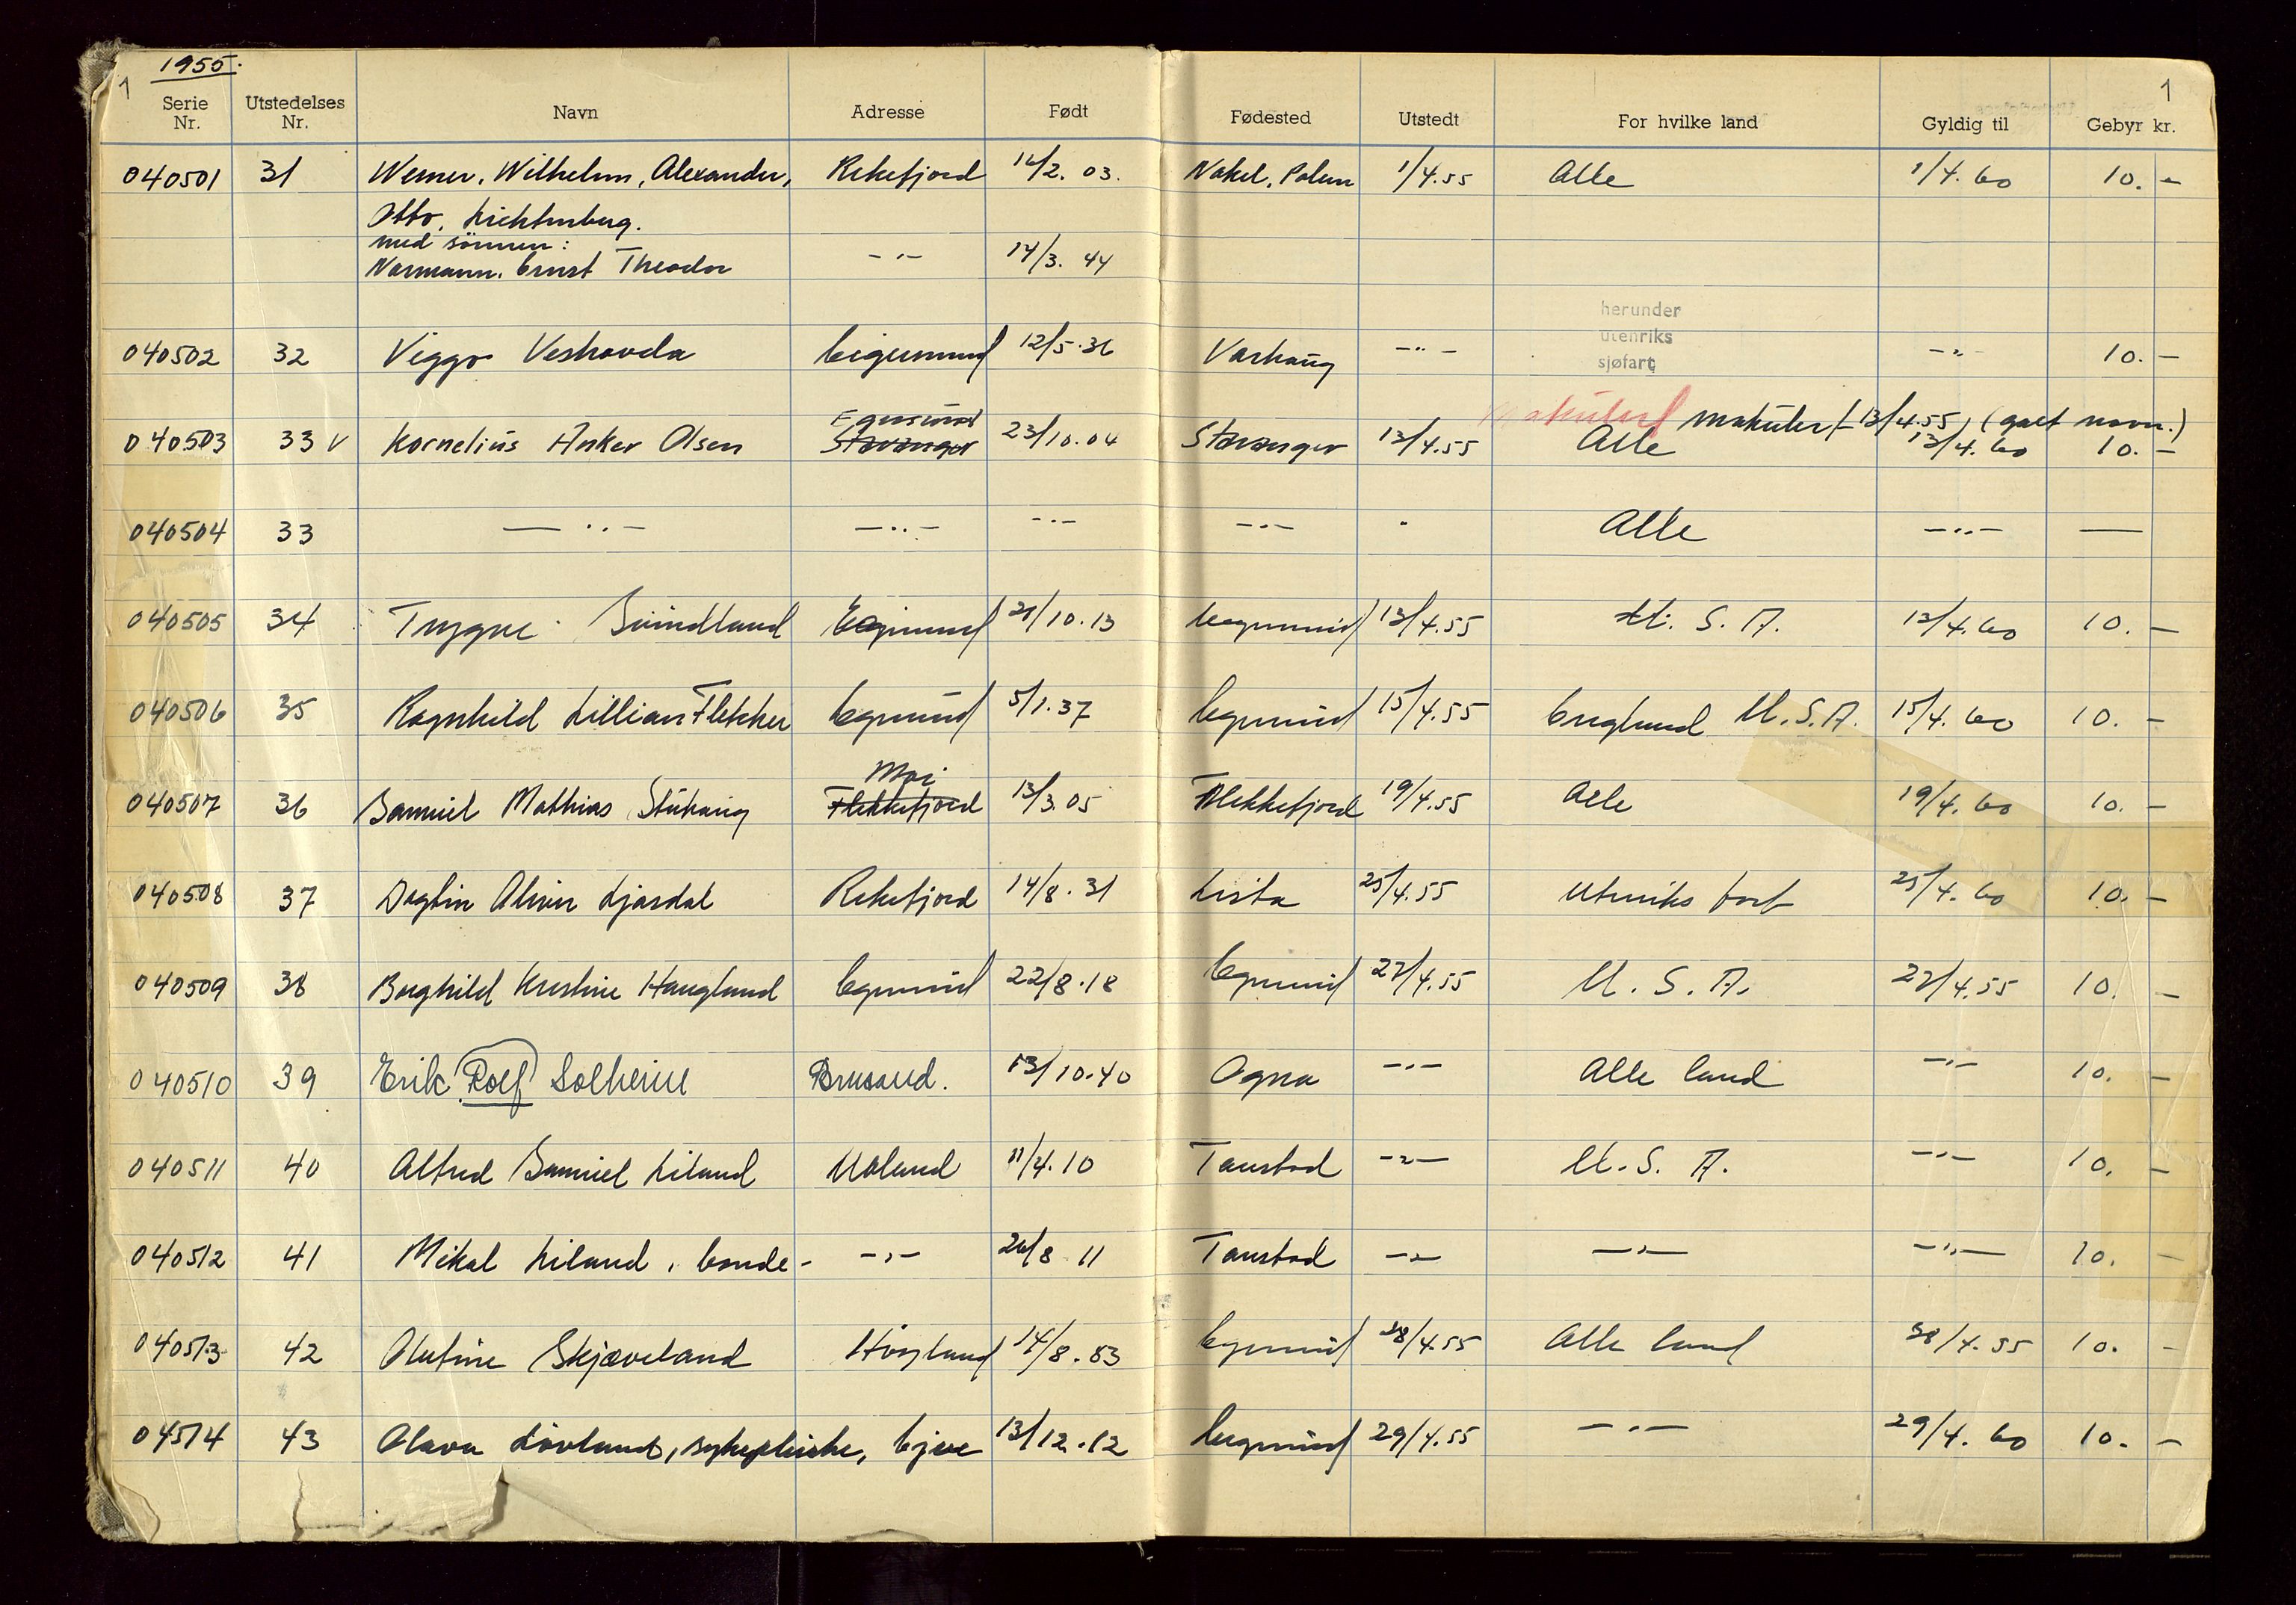 1955.
1
1
Serie Nr. Utstedelses Nr. Navn Adresse Født Fødested Utstedt For hvilke land Gyldig til Gebyr kr.
040501 31 Werner, Wilhelm, Alexander, Rekefjord 14/2. 03. Nakel, Polen 1/4.55 Alle 1/4. 60 10. -
Otto, Lichtenberg.
med sönnen:
Normann, Ernst Theodor -"- 14/3. 44
herunder
utenriks
sjøfart
040502 32 Viggo Veshovda Eigersund 12/5.36 Varhaug -"- -"- 10. -
Makulert makulert 13/4.55) (galt navn.)
Egersund
040503 33 v Kornelius Anker Olsen Stavanger 23/10.04 Stavanger 13/4.55 Alle 13/4. 60 10. -
040504 33 -"- -"- -"- -"- " Alle -"- —
040505 34 Trygve Svindland Egersund 21/10.13 Egersund 13/4.55 U. S. A. 13/4.60 10. -
040506 35 Ragnhild Lillian Fletcher Egersund 5/1.37 Egersund 15/4.55 England U.S.A. 15/4. 60 10. -
Moi
040507 36 Samuel Mathias Stuhaug Flekkefjord 13/3.05 Flekkefjord 19/4.55 Alle 19/4. 60 10. -
040508 37 Dagfin Alvin Ljosdal Rekefjord 14/8.31 Lista 25/4.55 Utenriks fart 25/4. 60 10. -
040509 38 Borghild Kristine Haugland Egersund 22/8.18 Egersund 27/4.55 U. S. A. 27/4.55 10. -
040510 39 Erik Rolf Solheim Brusand. 13/10.40 Ogna -"- Alle land -"- 10. -
040511 40 Alfred Samuel Liland Ualand 11/4.10 Tonstad -"- U. S. A. -"- 10. -
040512 41 Mikal Liland, bonde - -"- 26/8 11 Tonstad -"- -"- -"- 10. -
040513 42 Olufine Skjæveland Högland 14/8.83 Egersund 28/4.55 Alle land 28/4.55 10. -
04514 43 Olava Lövland, sykepleiske, Eje 13/12.12 Egersund 29/4.55 -"- 29/4. 60 10. -